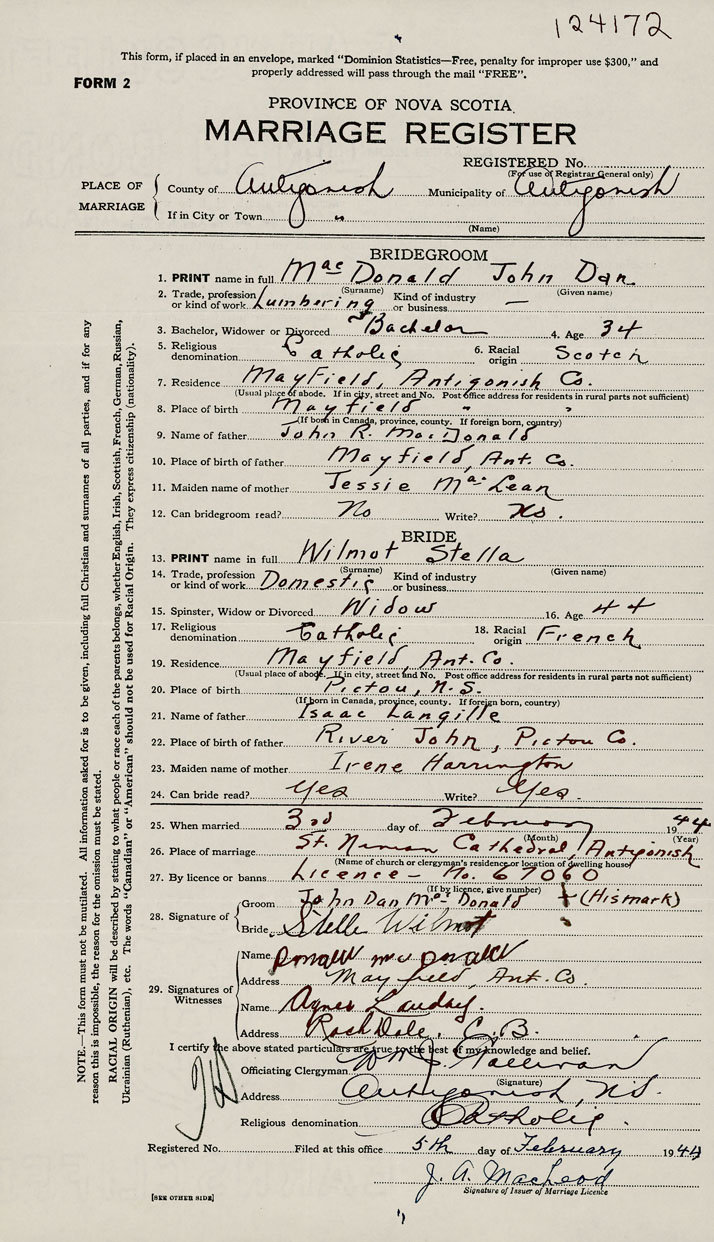 124172
This form, if placed in an envelope, marked “Dominion Statistics—Free, penalty for improper use $300,” and
properly addressed will pass through the mail “FREE”.
FORM 2
PROVINCE OF NOVA SCOTIA
MARRIAGE REGISTER
REGISTERED No.
(For use of Registrar General only)
PLACE OF MARRIAGE
County of Antigonish Municipality of Antigonish
If in City or Town "
(Name)
BRIDEGROOM
1. PRINT name in full MacDonald John Dan
(Surname) (Given name)
2. Trade, profession or kind of work Lumbering Kind of industry or business —
3. Bachelor, Widower or Divorced Bachelor 4. Age 34
5. Religious denomination Catholic 6. Racial origin Scotch
7. Residence Mayfield, Antigonish Co.
(Usual place of abode. If in city, street and No. Post office address for residents in rural parts not sufficient)
8. Place of birth Mayfield " "
(If born in Canada, province, county. If foreign born, country)
9. Name of father John R. MacDonald
10. Place of birth of father Mayfield, Ant. Co.
11. Maiden name of mother Jessie MacLean
12. Can bridegroom read? No Write? No.
BRIDE
13. PRINT name in full Wilmot Stella
(Surname) (Given name)
14. Trade, profession or kind of work Domestic Kind of industry or business
15. Spinster, Widow or Divorced Widow 16. Age 44
17. Religious denomination Catholic 18. Racial origin French
19. Residence Mayfield, Ant. Co.
(Usual place of abode. If in city, street and No. Post office address for residents in rural parts not sufficient)
20. Place of birth Pictou, N.S.
(If born in Canada, province, county. If foreign born, country)
21. Name of father Isaac Langille
22. Place of birth of father River John, Pictou Co.
23. Maiden name of mother Irene Harrington
24. Can bride read? Yes Write? Yes.
25. When married 3rd day of February 1944
(Month) (Year)
26. Place of marriage St. Ninian Cathedral, Antigonish
(Name of church or clergyman's residence or location of dwelling house)
27. By licence or banns Licence — No. 67060
(If by licence, give number)
28. Signature of
Groom John Dan MacDonald + (His mark)
Bride Stella Wilmot
29. Signatures of Witnesses
Name Donald McDonald
Address Mayfield, Ant. Co.
Name Agnes Landry.
Address Rock Dale, C.B.
I certify the above stated particulars are true to the best of my knowledge and belief.
Officiating Clergyman
(Signature)
Address Antigonish, N.S.
Religious denomination Catholic.
Registered No. Filed at this office 5th day of February 1944
J. A. MacLeod
Signature of Issuer of Marriage Licence
[SEE OTHER SIDE]
NOTE.—This form must not be mutilated. All information asked for is to be given, including full Christian and surnames of all parties, and if for any
reason this is impossible, the reason for the omission must be stated.
RACIAL ORIGIN will be described by stating to what people or race each of the parents belongs, whether English, Irish, Scottish, French, German, Russian,
Ukrainian (Ruthenian), etc. The words “Canadian” or “American” should not be used for Racial Origin. They express citizenship (nationality).